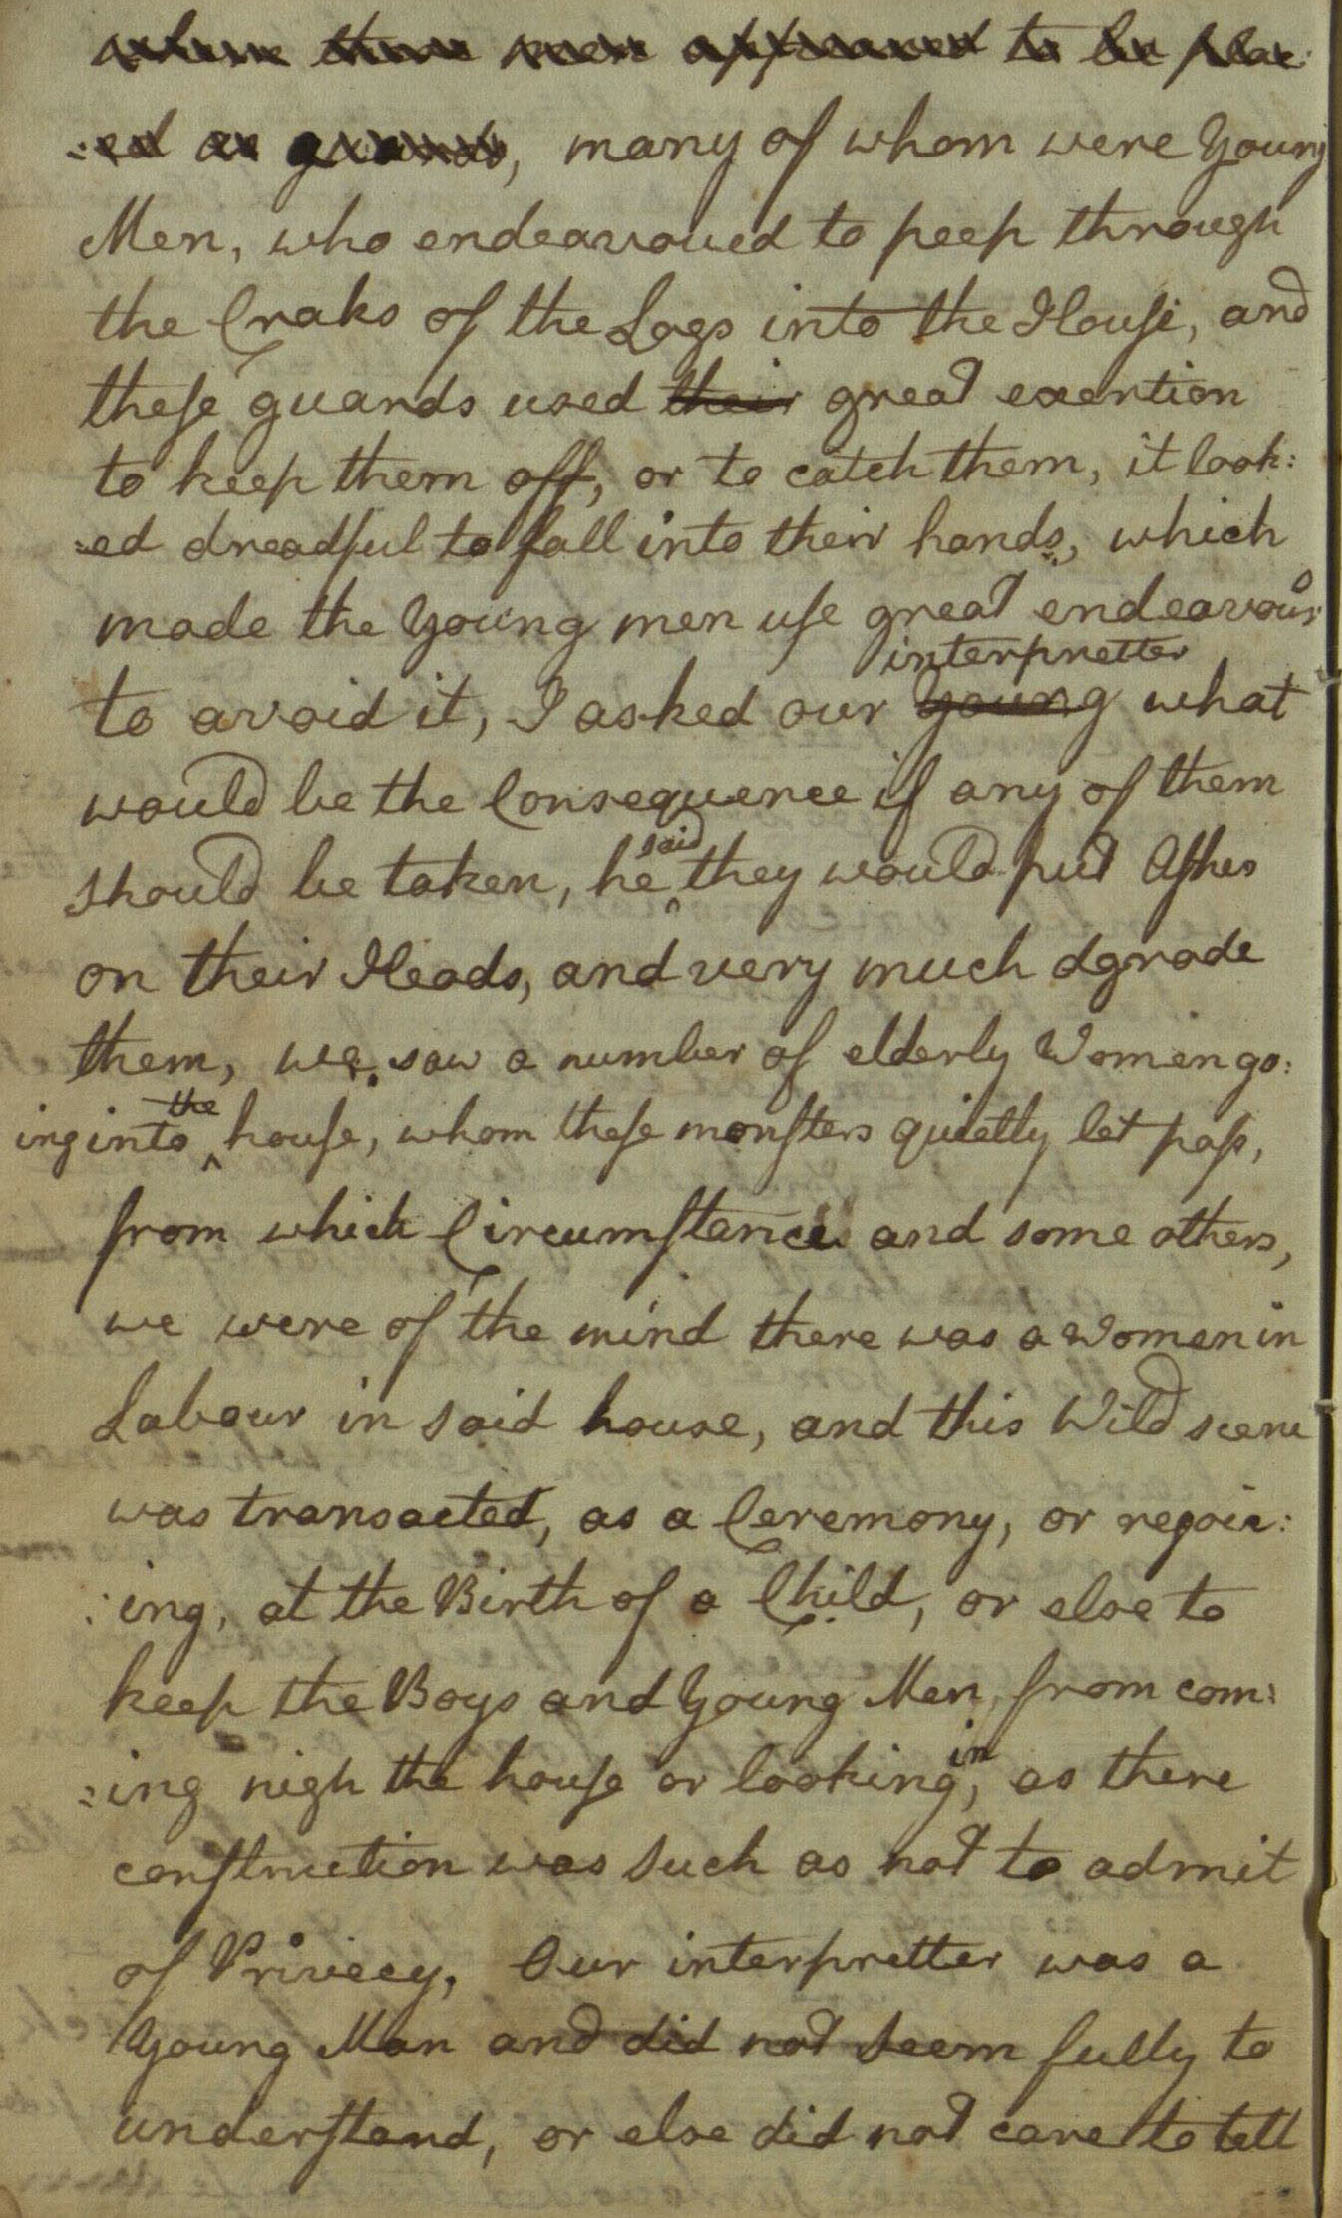 where these men appeared to be plac:
:ed as guards, many of whom were Young
Men, who endeavoued to peep through
the Craks of the Logs into the House, and
these guards used their great exertion
to keep them off, or to catch them, it look:
:ed dreadful to fall into their hands, which
made the Young men use great endeavours
interpretter
to avoid it, I asked our young what
would be the Consequence if any of them
said
should be taken, he they would put Ashes
on their Heads, and very much dgrade
them, we saw a number of elderly Women go:
the
ing into house, whom these monsters quietly let pass,
from which Circumstances and some others,
we were of the mind there was a Women in
Labour in said house, and this Wild scene
was transacted, as a Ceremony, or rejoic:
:ing, at the Birth of a Child, or else to
keep the Boys and Young Men, from com:
in
:ing nigh the house or looking, as there
construction was such as not to admit
of Privecy, Our interpretter was a
Young Man and did not seem fully to
understand, or else did not care to tell